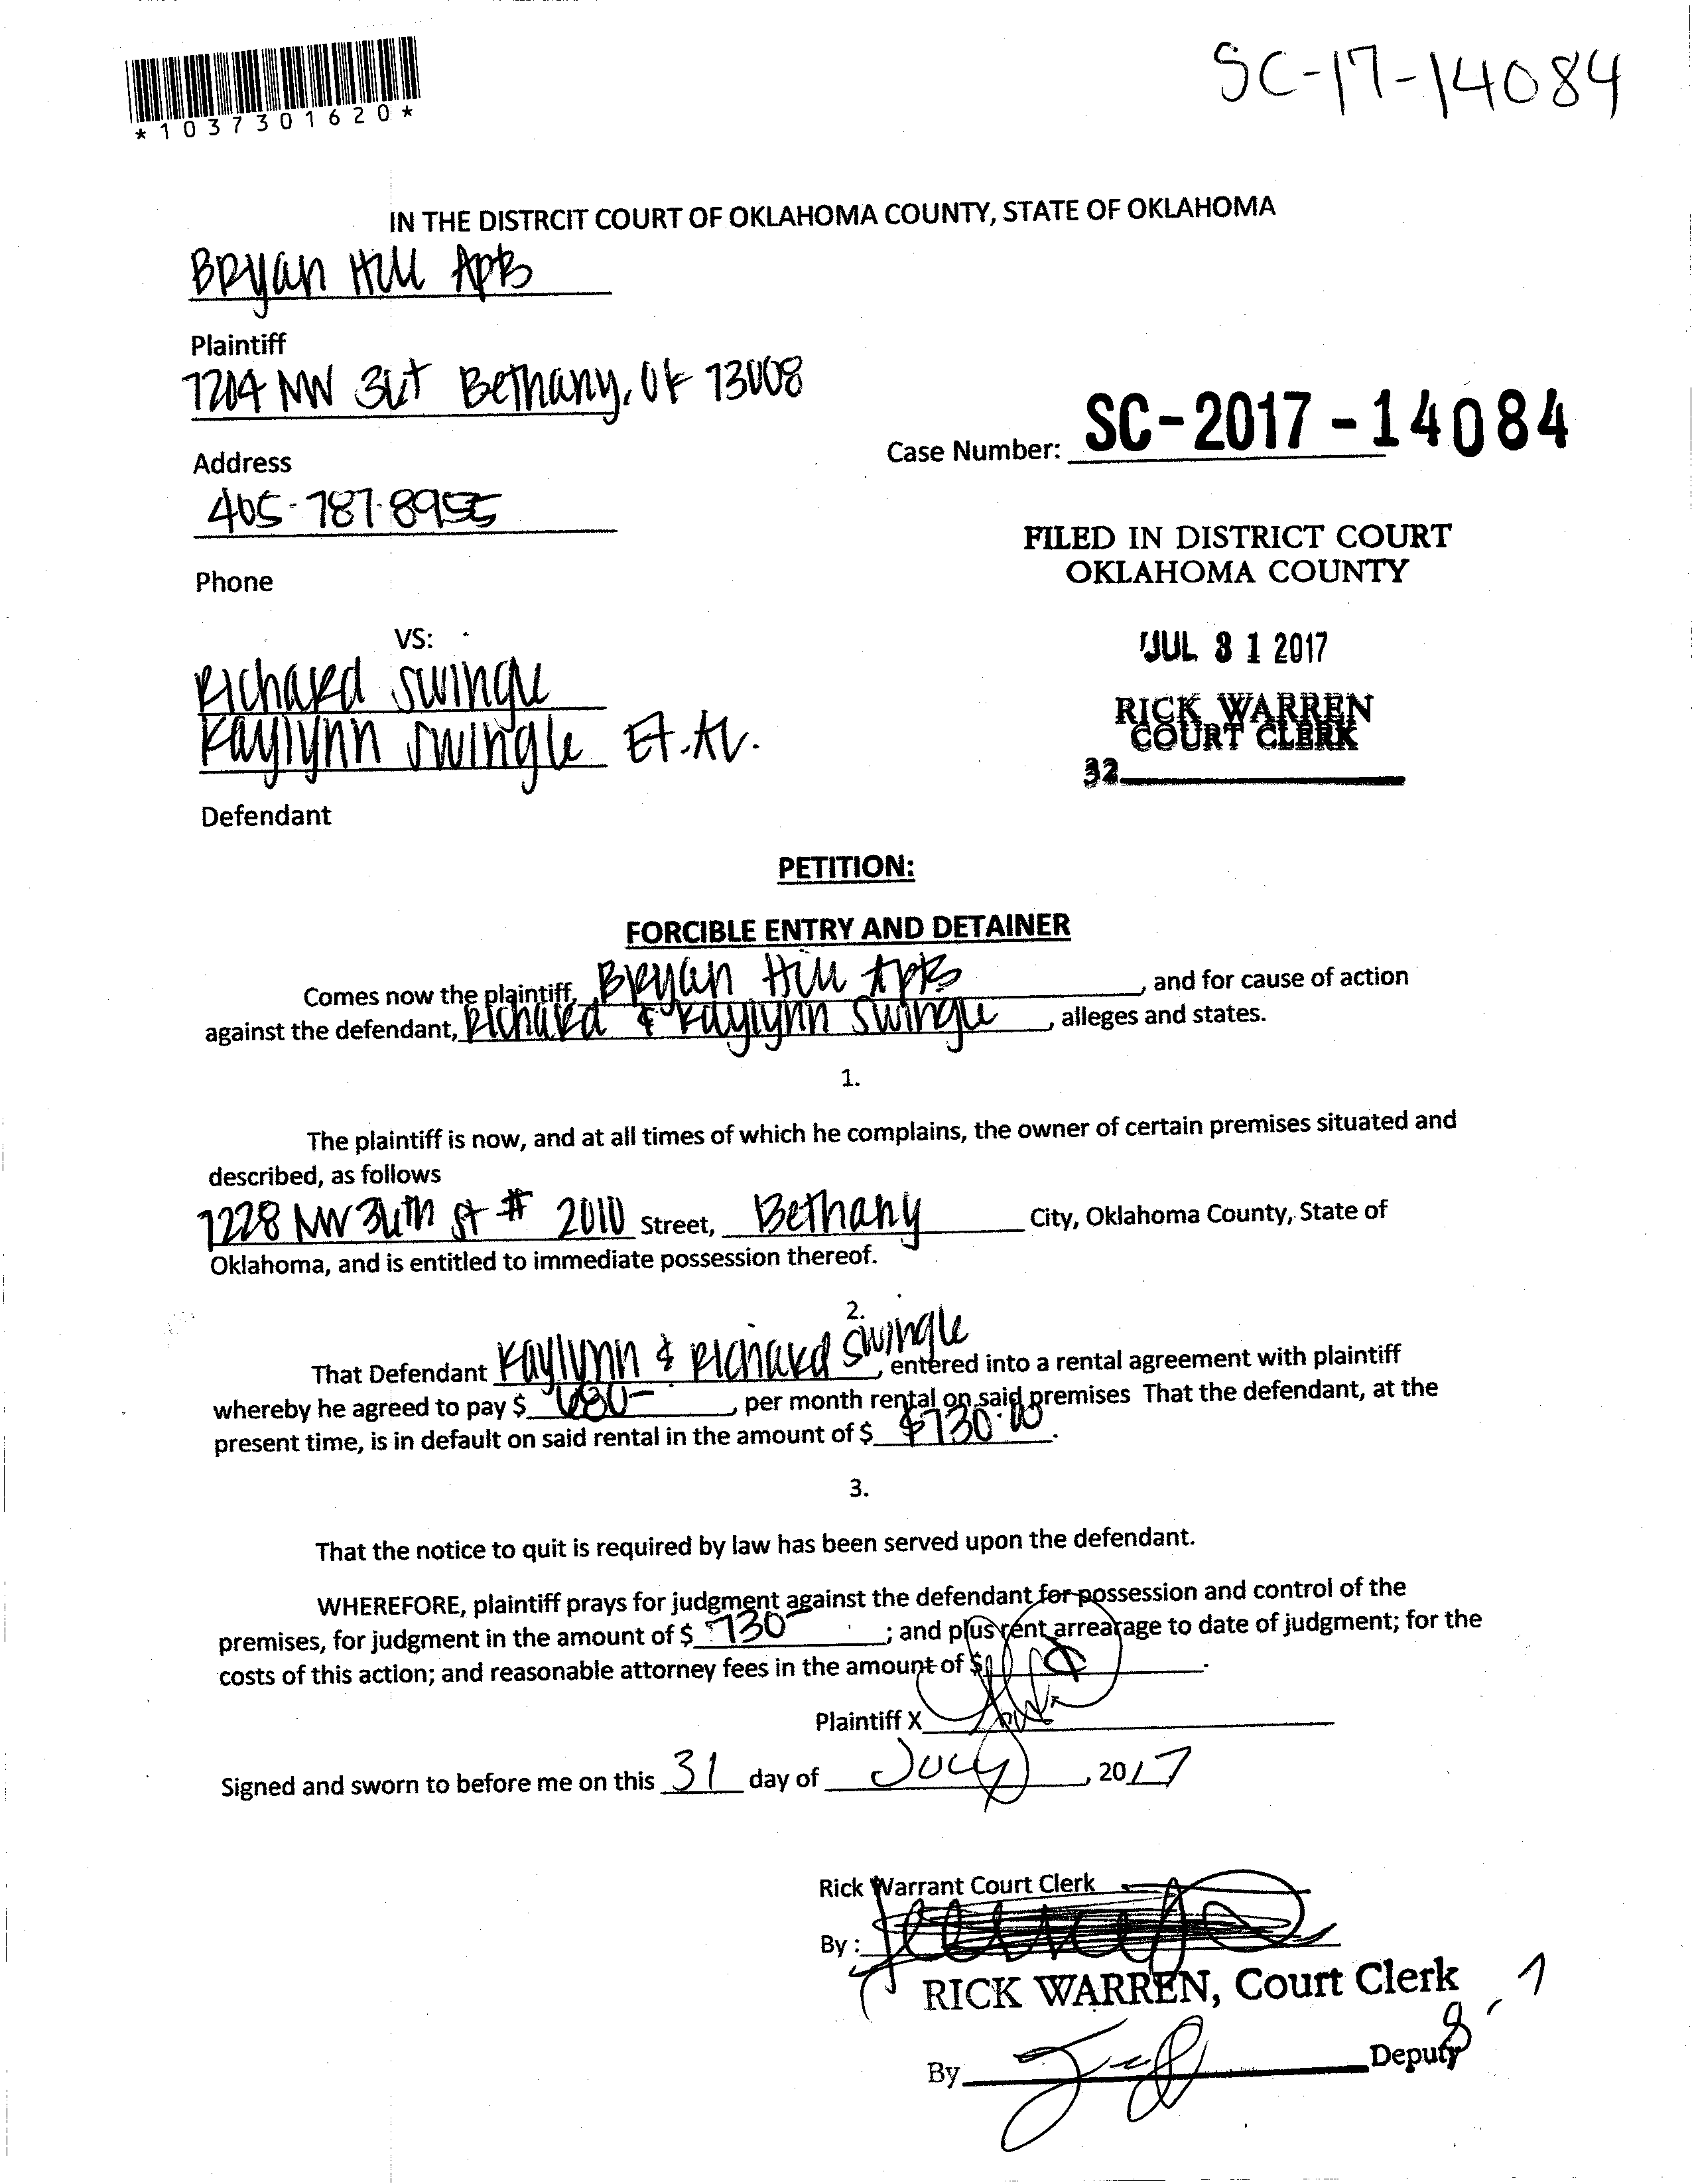 SC-17-14084
*1037301620*
IN THE DISTRCIT COURT OF OKLAHOMA COUNTY, STATE OF OKLAHOMA
Bryan Hill Apts
Plaintiff
7204 NW 36t Bethany, OK 73008
Address
Case Number: SC-2017-14084
405-787-8955
Phone
FILED IN DISTRICT COURT
OKLAHOMA COUNTY
JUL 31 2017
RICK WARREN
COURT CLERK
32
VS:
Richard Swingle
Kaylynn Swingle Et. Al.
Defendant
PETITION:
FORCIBLE ENTRY AND DETAINER
Comes now the plaintiff, Bryan Hill Apts, and for cause of action
against the defendant, Richard & Kaylynn Swingle, alleges and states.
1.
The plaintiff is now, and at all times of which he complains, the owner of certain premises situated and
described, as follows
7228 NW 36th St # 2010 Street, Bethany City, Oklahoma County, State of
Oklahoma, and is entitled to immediate possession thereof.
2.
That Defendant Kaylynn & Richard Swingle, entered into a rental agreement with plaintiff
whereby he agreed to pay $ per month rental on said premises That the defendant, at the
present time, is in default on said rental in the amount of $ $730.00.
3.
That the notice to quit is required by law has been served upon the defendant.
WHEREFORE, plaintiff prays for judgment against the defendant for possession and control of the
premises, for judgment in the amount of $ $730-; and plus rent arrearage to date of judgment; for the
costs of this action; and reasonable attorney fees in the amount of $
Plaintiff X
Signed and sworn to before me on this 31 day of July, 2017
Rick Warrant Court Clerk
By:
RICK WARREN, Court Clerk
By Deputy
8-1